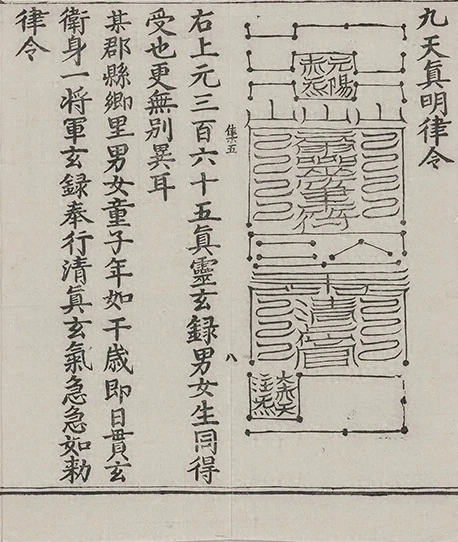 九天真明律令
元陽
集五
八
清
右上元三百六十五真靈玄録男女生同得
受也更無別異耳
某郡縣鄉里男女童子年如干歳即日貫玄
衛身一将軍玄録奉行清真玄氣急急如勑
律令